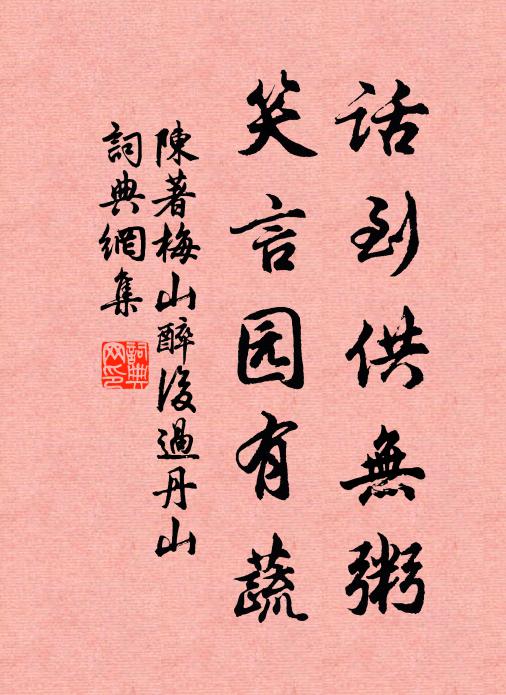 话到供無粥
笑言园有蔬
陳著梅山醉後過丹山
詞典網集
詞典
网印